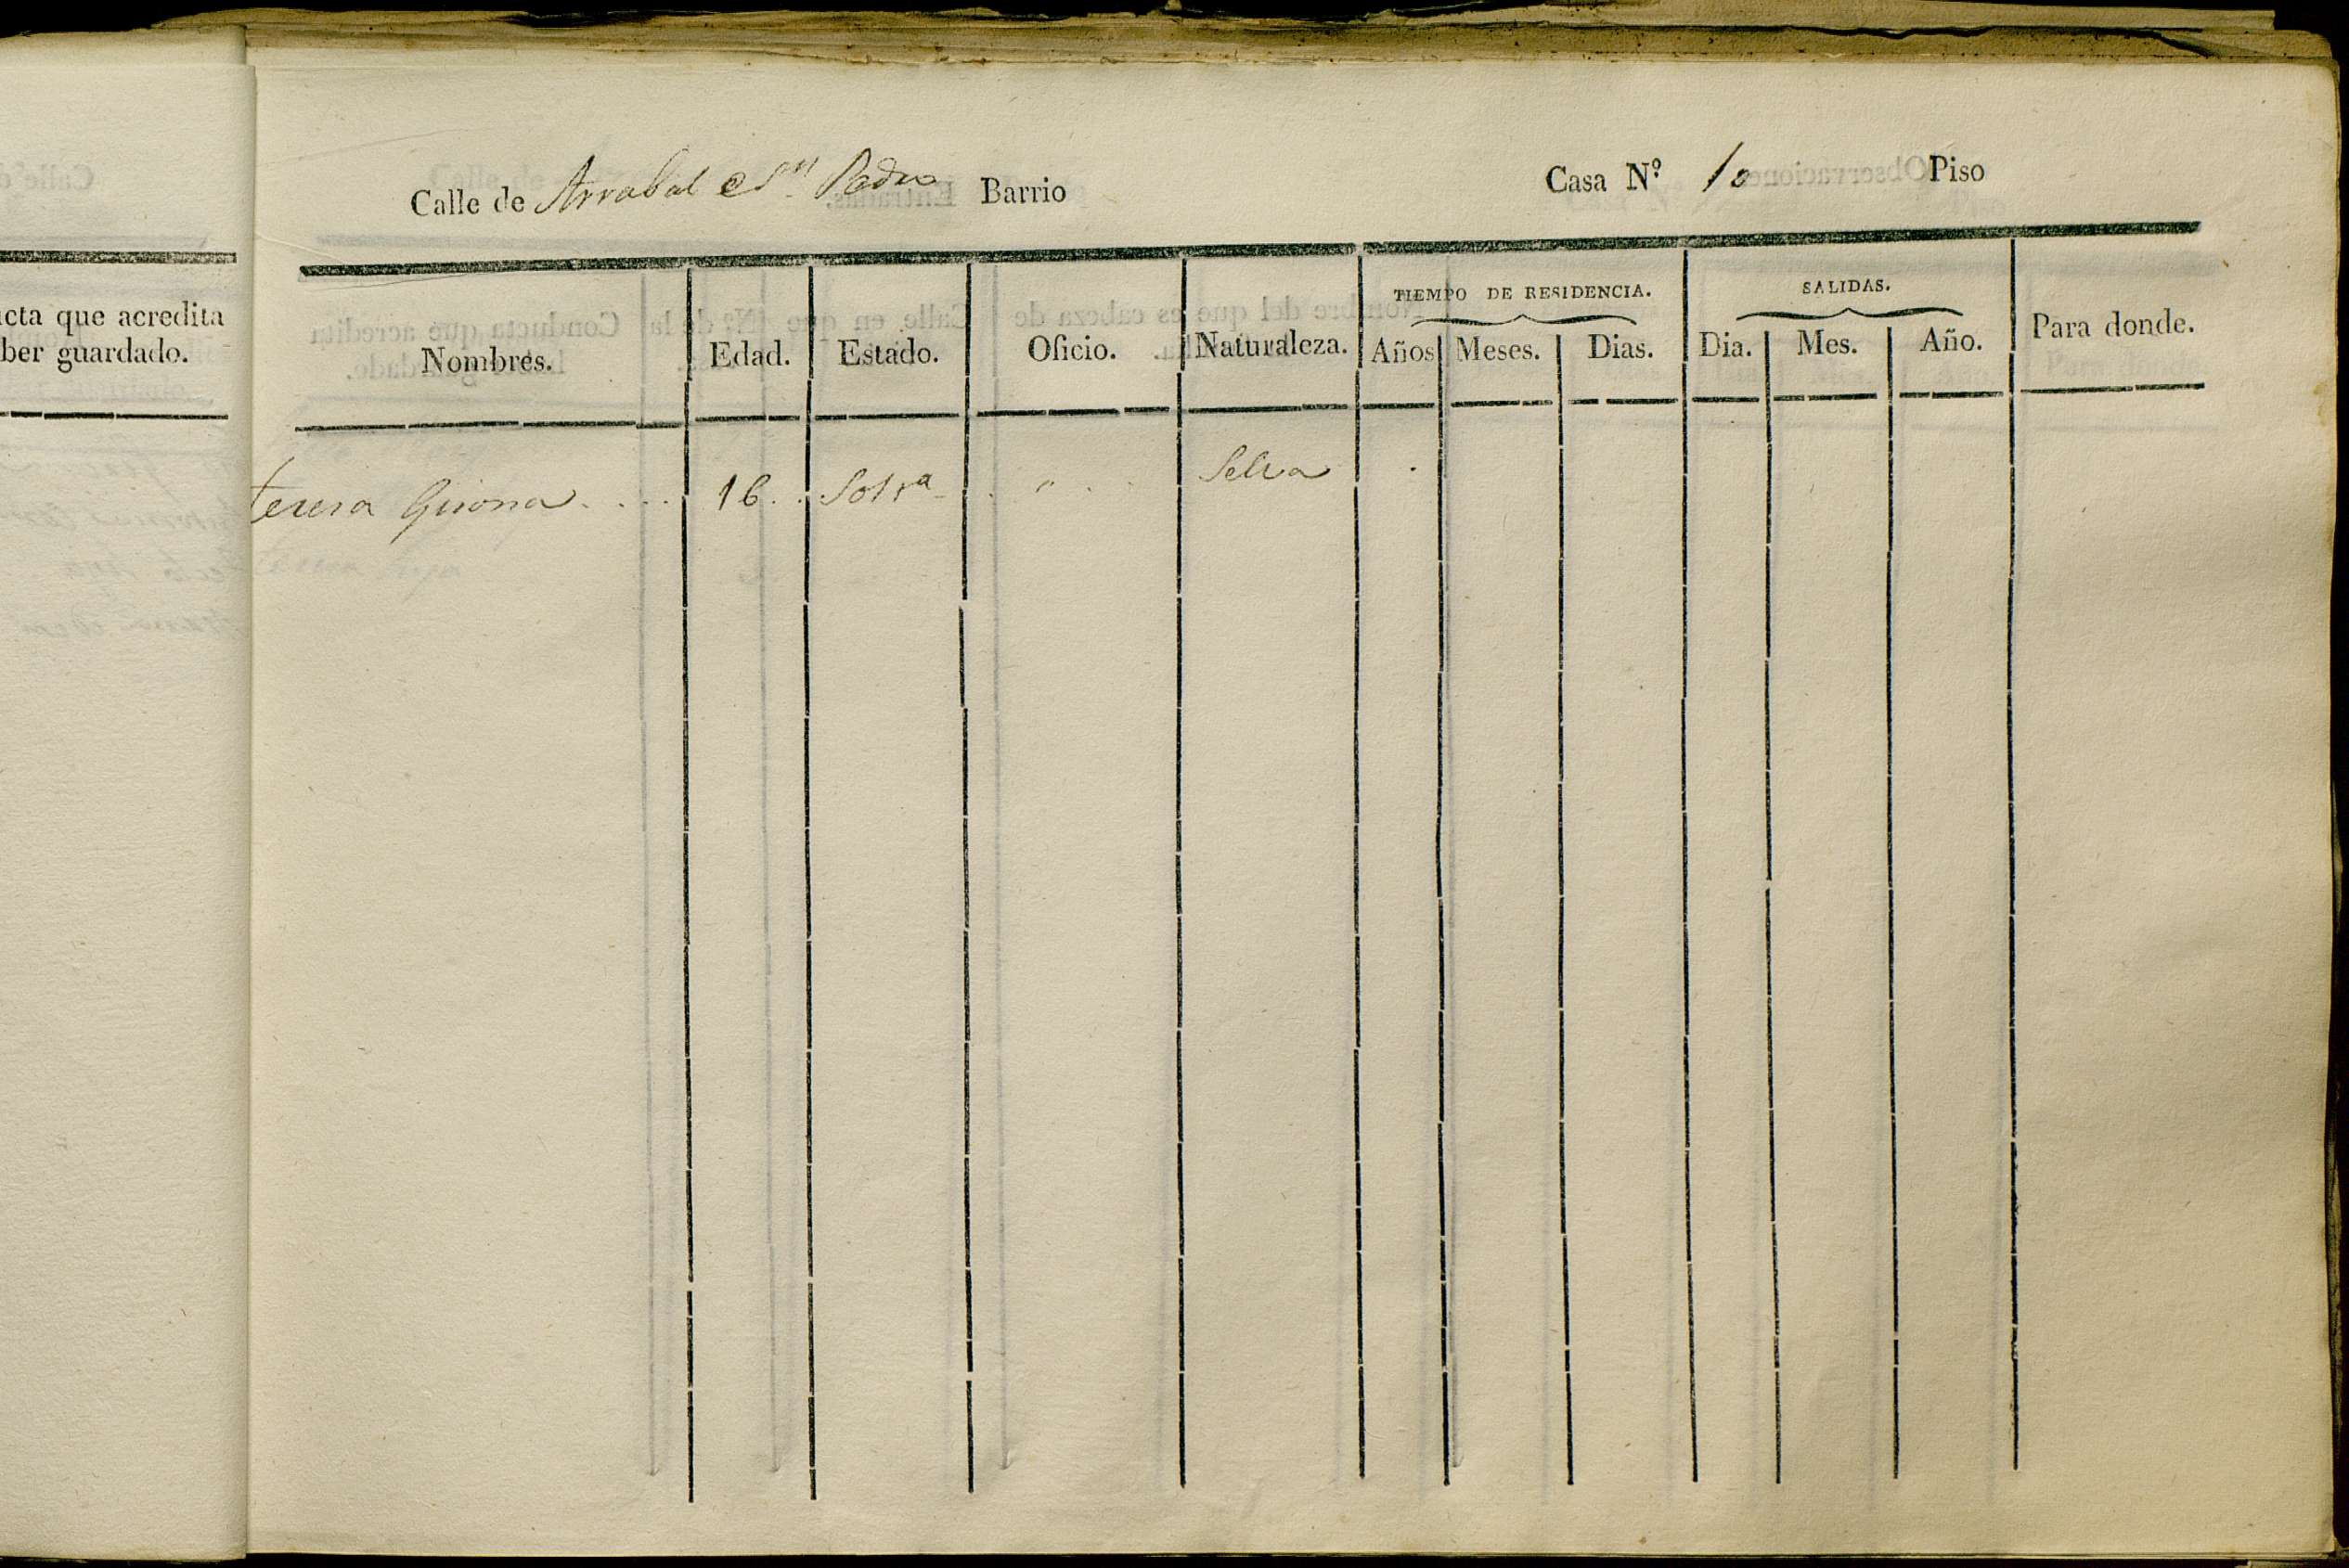 Calle de Arrabal Sn. Pedro Barrio Casa N.º 10 Piso
cta que acredita
ber guardado.
Nombres. Edad. Estado. Oficio. Naturaleza. TIEMPO DE RESIDENCIA. SALIDAS. Para donde.
Años Meses. Dias. Dia. Mes. Año.
teresa Girona . . . . 16 . . Solra . " . . Selva .